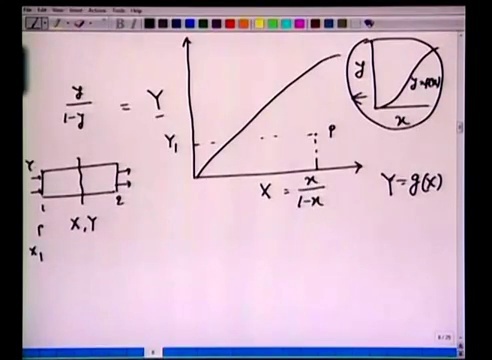 File Edit View Insert Actions Tools Help
y/(1-y) = Y
Y₁
P
X = x/(1-x)
y
y=f(x)
x
Y=g(X)
1
2
X,Y
P
X₁